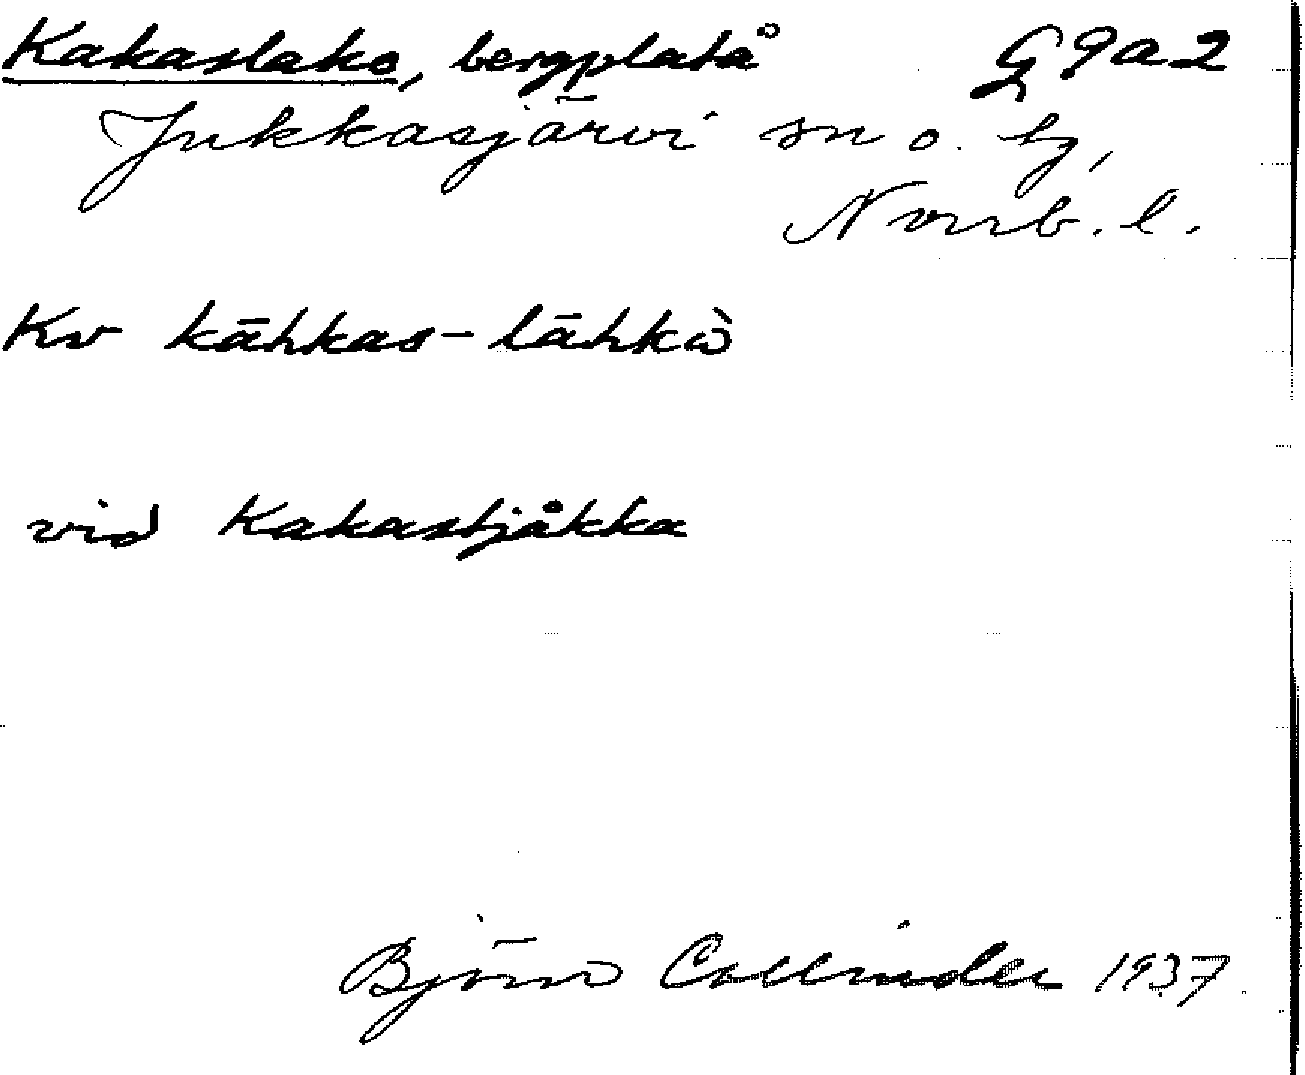 Kakaslako, bergplatå G 9 a 2
Jukkasjärvi sn o. tg,
Norrb. l.
Kv kāhkas-lāhkò
vid Kakastjåkka
Björn Collinder 1937.